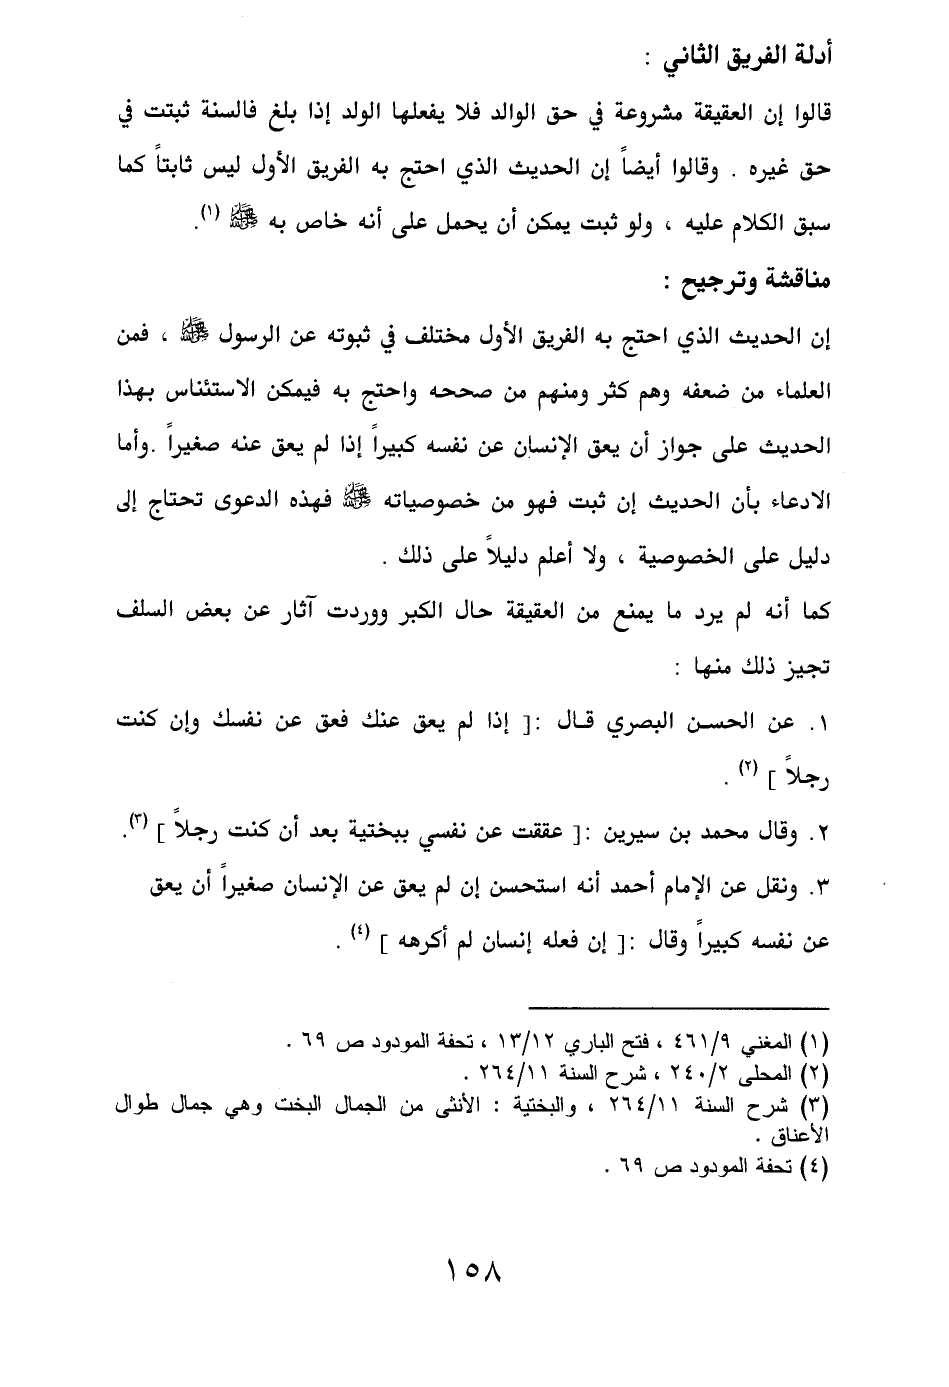 أدلة الفريق الثاني :
قالوا إن العقيقة مشروعة في حق الوالد فلا يفعلها الولد إذا بلغ فالسنة ثبتت في
حق غيره . وقالوا أيضاً إن الحديث الذي احتج به الفريق الأول ليس ثابتاً كما
سبق الكلام عليه ، ولو ثبت يمكن أن يحمل على أنه خاص به ﷺ (١).
مناقشة وترجيح :
إن الحديث الذي احتج به الفريق الأول مختلف في ثبوته عن الرسول ﷺ ، فمن
العلماء من ضعفه وهم كثر ومنهم من صححه واحتج به فيمكن الاستئناس بهذا
الحديث على جواز أن يعق الإنسان عن نفسه كبيراً إذا لم يعق عنه صغيراً .وأما
الادعاء بأن الحديث إن ثبت فهو من خصوصياته ﷺ فهذه الدعوى تحتاج إلى
دليل على الخصوصية ، ولا أعلم دليلاً على ذلك .
كما أنه لم يرد ما يمنع من العقيقة حال الكبر ووردت آثار عن بعض السلف
تجيز ذلك منها :
١. عن الحسن البصري قال :[ إذا لم يعق عنك فعق عن نفسك وإن كنت
رجلاً ] (٢) .
٢. وقال محمد بن سيرين :[ عققت عن نفسي ببختية بعد أن كنت رجلاً ] (٣).
٣. ونقل عن الإمام أحمد أنه استحسن إن لم يعق عن الإنسان صغيراً أن يعق
عن نفسه كبيراً وقال :[ إن فعله إنسان لم أكرهه ] (٤) .
(١) المغني ٤٦١/٩ ، فتح الباري ١٣/١٢ ، تحفة المودود ص ٦٩ .
(٢) المحلى ٢٤٠/٢ ، شرح السنة ٢٦٤/١١ .
(٣) شرح السنة ٢٦٤/١١ ، والبختية : الأنثى من الجمال البخت وهي جمال طوال
الأعناق .
(٤) تحفة المودود ص ٦٩ .
١٥٨